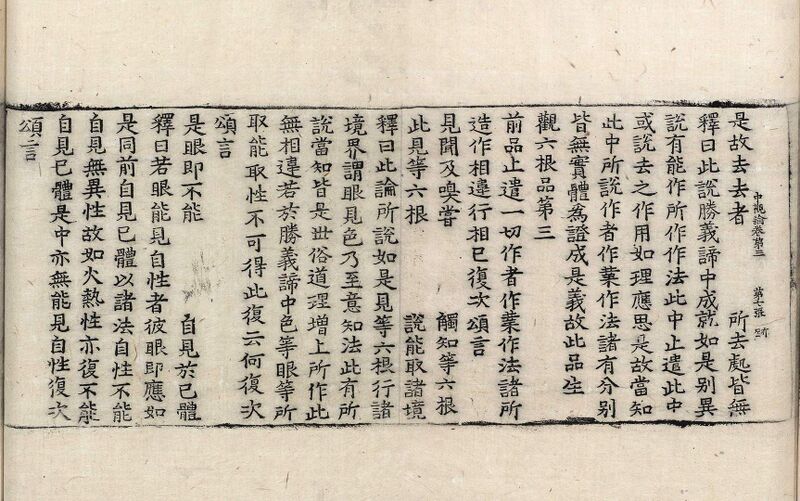 是故去去者 所去處皆無
中觀論卷第三 第十張 跡
釋曰此說勝義諦中成就如是別異
說有能作所作作法此中止遣此中
或說去之作用如理應思是故當知
此中所說作者作業作法諸有分別
皆無實體為證成是義故此品生
觀六根品第三
前品止遣一切作者作業作法諸所
造作相違行相已復次頌言
見聞及嗅甞 觸知等六根
此見等六根 說能取諸境
釋曰此論所說如是見等六根行諸
境界謂眼見色乃至意知法此有所
說當知皆是世俗道理增上所作此
無相違若於勝義諦中色等眼等所
取能取性不可得此復云何復次
頌言
是眼即不能 自見於已體
釋曰若眼能見自性者彼眼即應如
是同前自見已體以諸法自性不能
自見無異性故如火熱性亦復不能
自見已體是中亦無能見自性復次
頌言